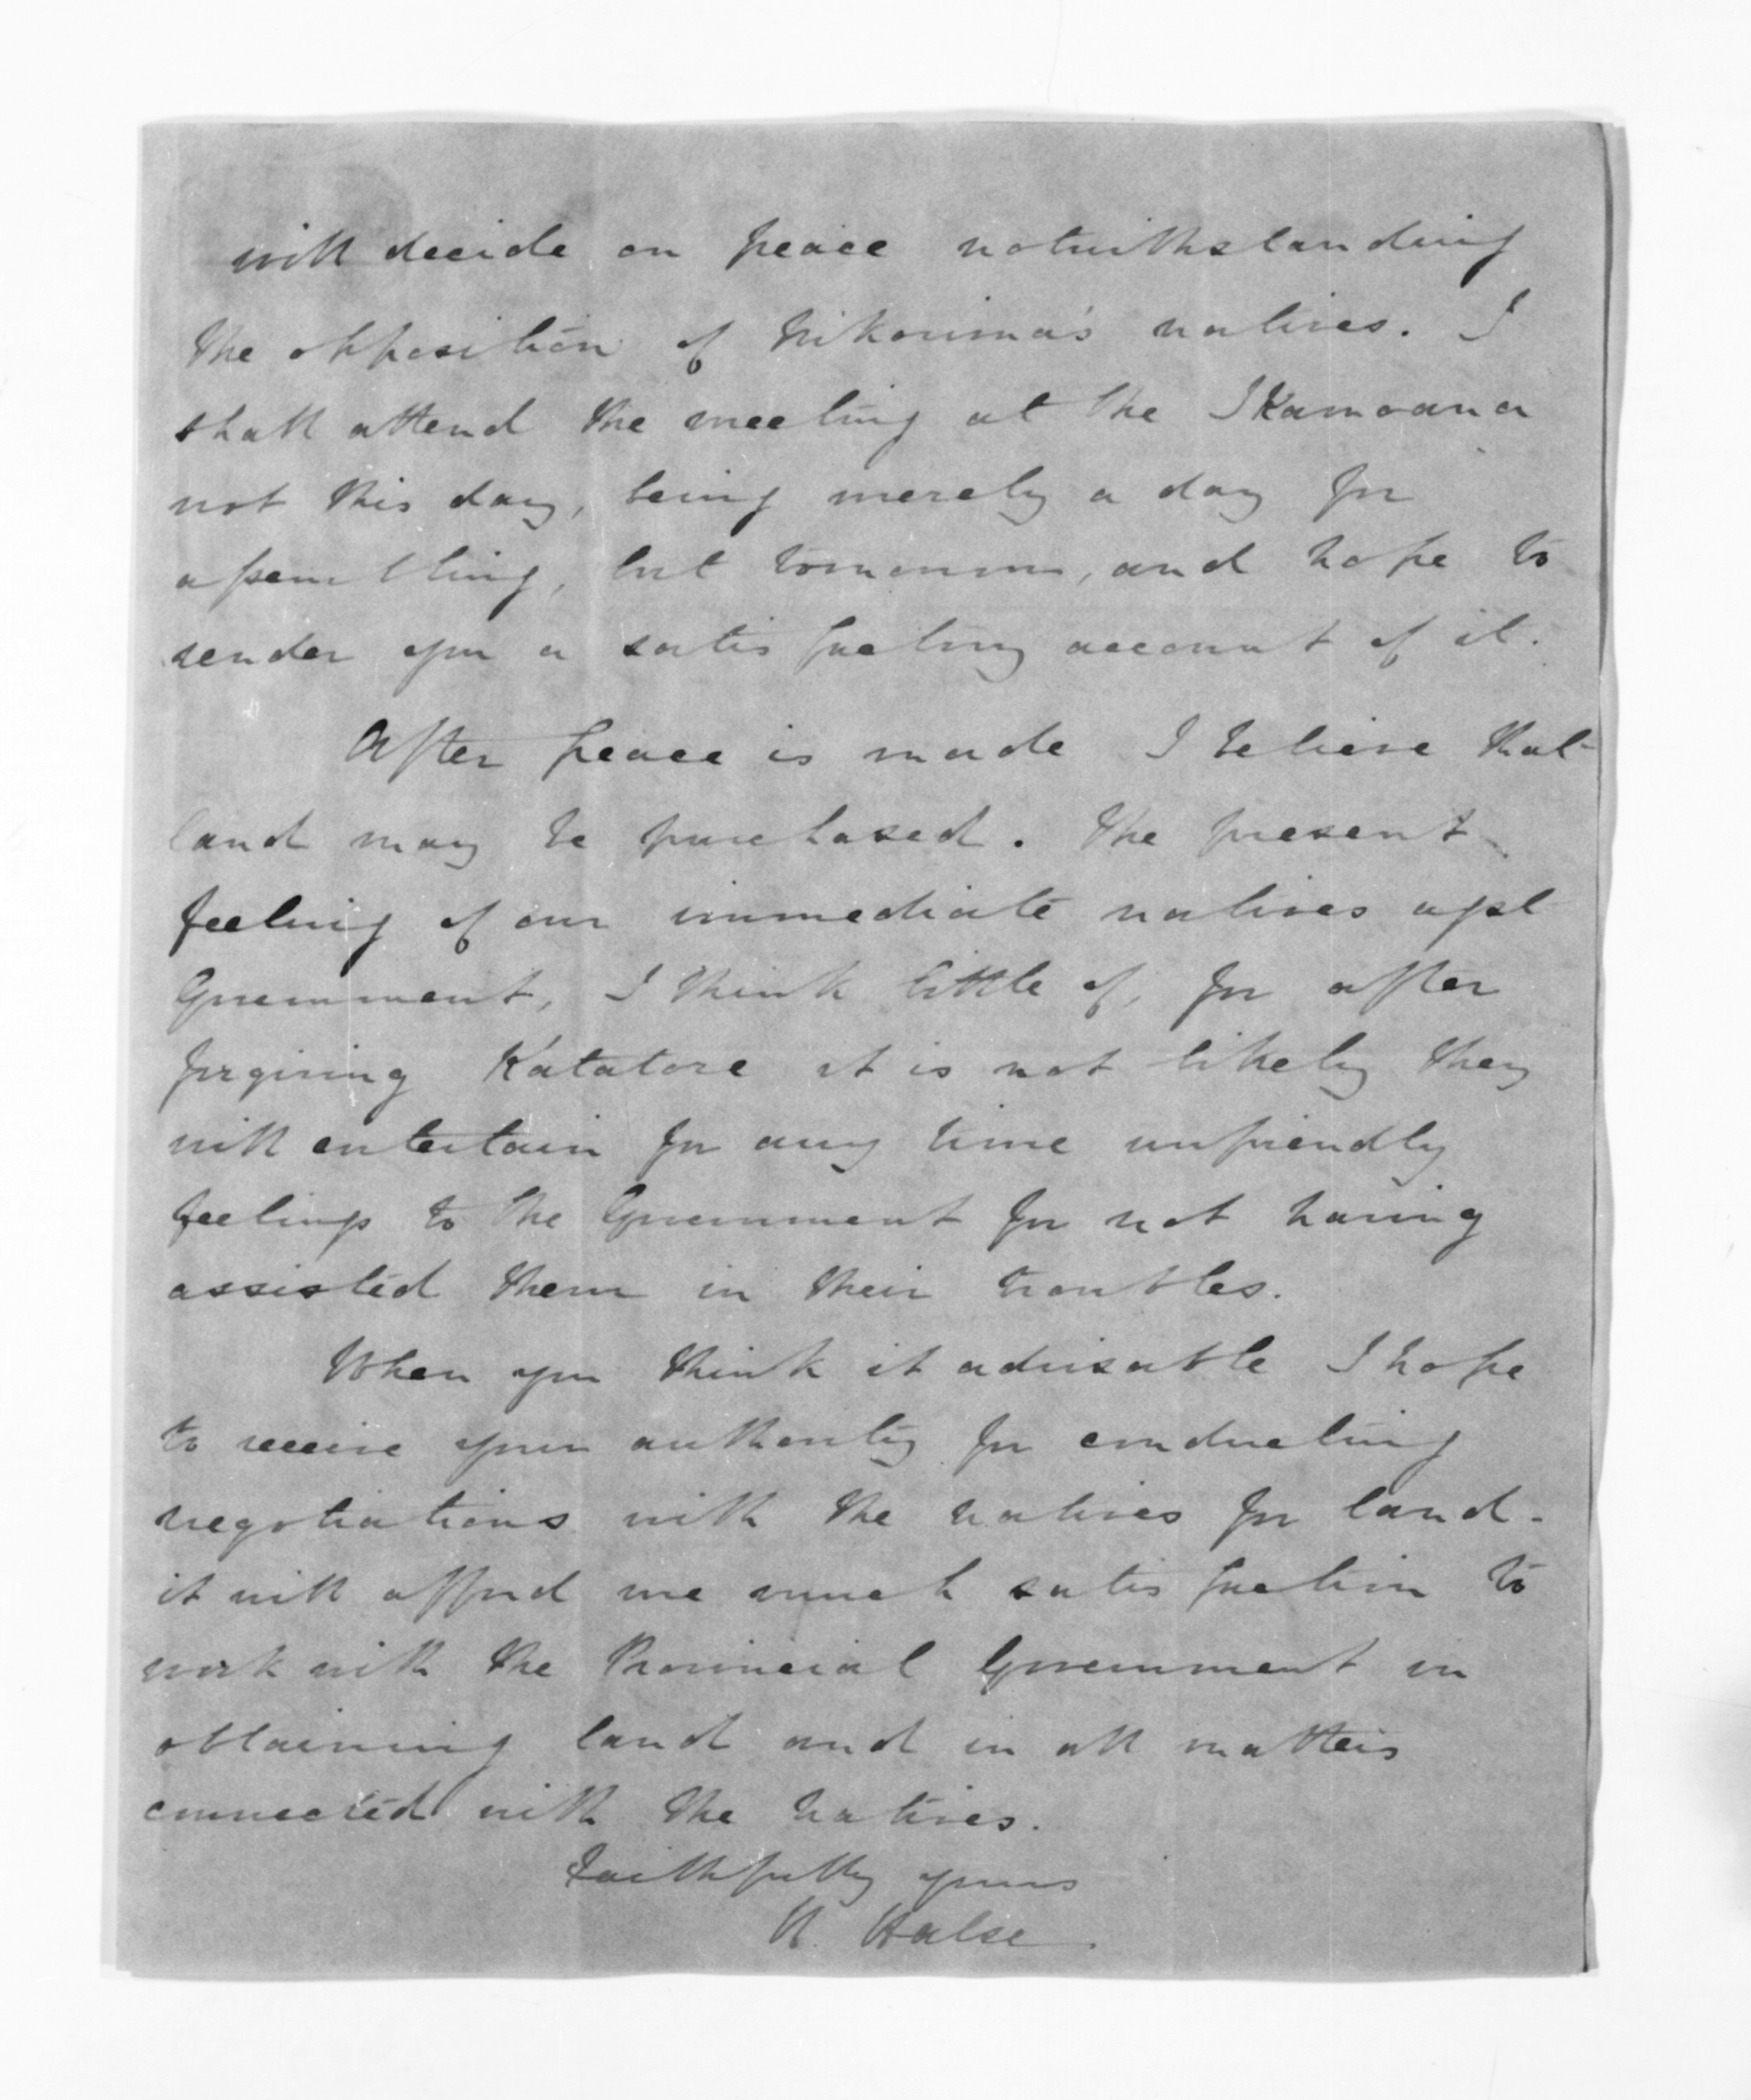 will decide on peace notwithstanding
the opposition of Nikorima's natives. I
shall attend the meeting at the Ikamoana
not this day, being merely a day for
assembling, but tomorrow, and hope to
render you a satisfactory account of it.
After peace is made I believe that
land may be purchased. The present
feeling of our immediate natives agst
Government, I think little of, for after
forgiving Katatore it is not likely they
will entertain for any time unfriendly
feelings to the Government for not having
assisted them in their troubles.
When you think it advisable I hope
to receive your authority for conducting
negotiations with the natives for land -
it will afford me much satisfaction to
work with the Provincial Government in
obtaining land and in all matters
connected with the natives.
Faithfully yours
H. Halse.